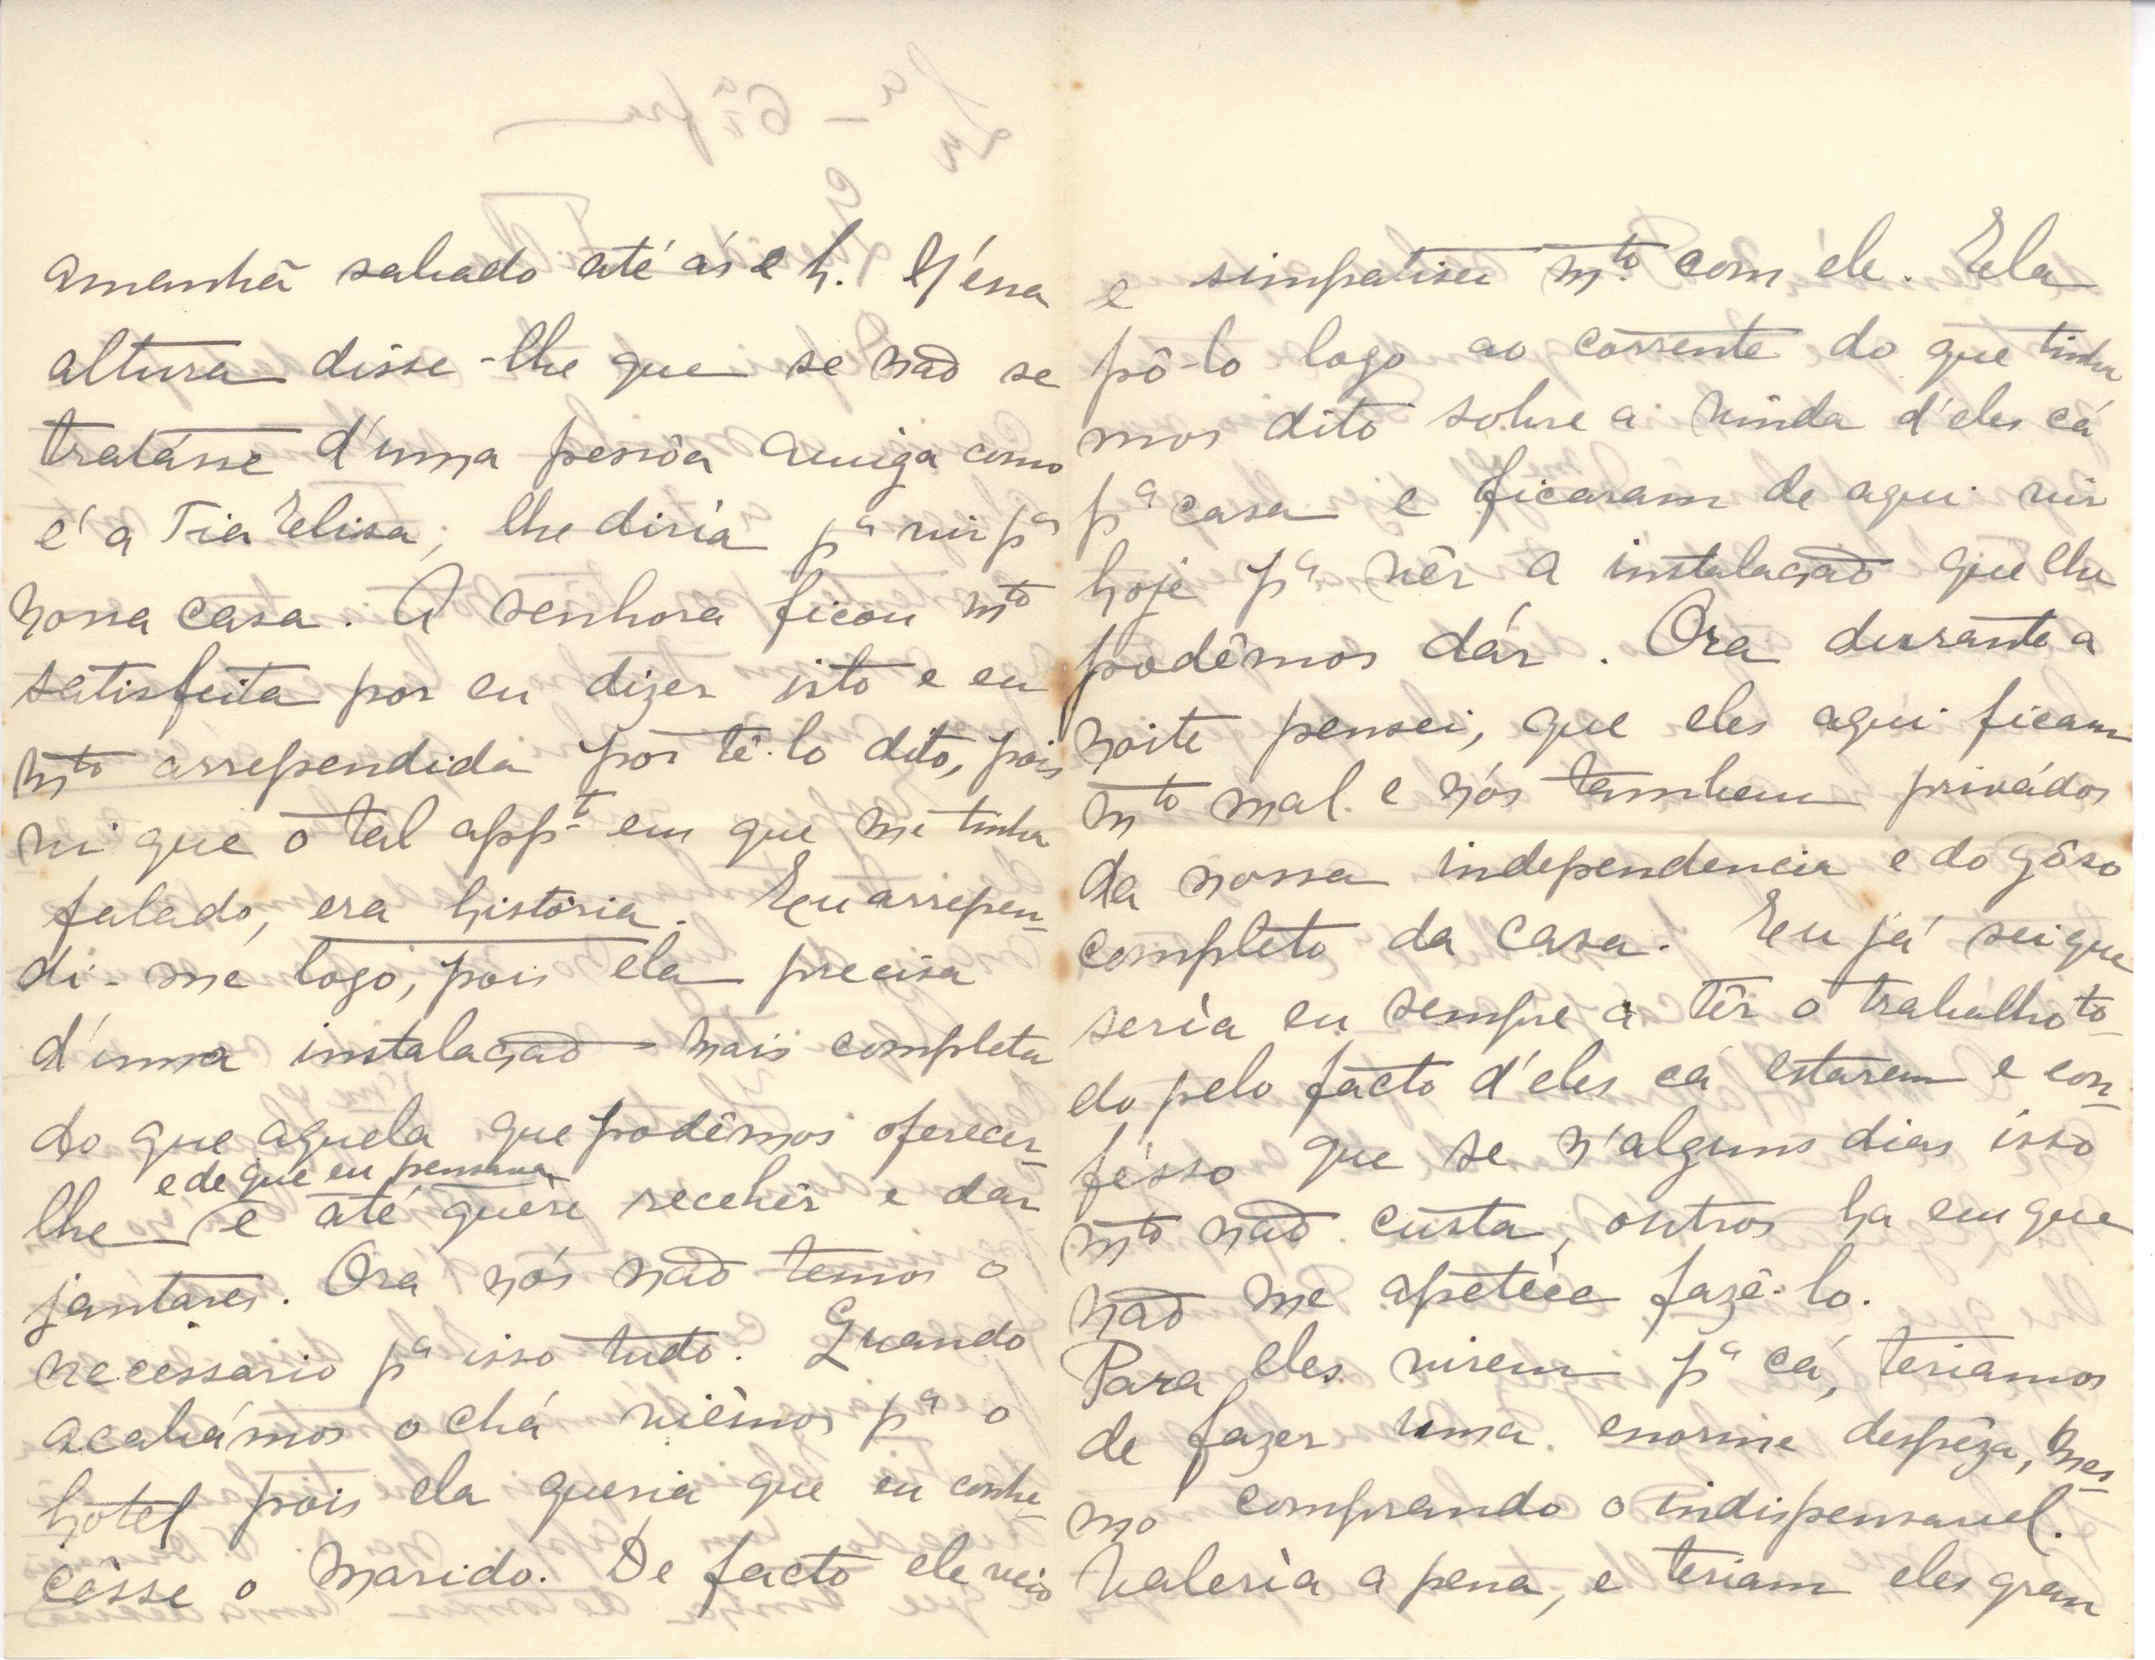 amanhã sabado até ás e h. N'éssa
altura disse-lhe que se não se
tratásse d'uma pessôa amiga como
é a Tia Elisa, lhe diria pª vir pª
nossa casa. A senhora ficou mto
satisfeita por eu dizer isto e eu
mto arrependida por tê-lo dito, pois
vi que o tal appt em que me tinha
falado, era história. Eu arrepen-
di-me logo, pois ela precisa
d'uma instalação mais completa
do que aquela que podêmos oferecer-
e de que eu pensava
lhe e até quére recebêr e dar
jantares. Ora nós não temos o
necessario pª isso tudo. Quando
acabámos o chá viémos pª o
hotel pois ela queria que eu conhe-
cêsse o marido. De facto ele veio
e simpatisei mto com êle. Ela
pô-lo logo ao corrente do que tinha
mos dito sobre a vinda d'eles cá
pª casa e ficaram de aqui vir
hoje pª vêr a instalação que lhe
podêmos dár. Ora durante a
noite pensei, que eles aqui ficam
mto mal e nós tambem privádos
da nossa independencia e do gôso
completo da casa. Eu já sei que
seria eu sempre a têr o trabalho to-
do pelo facto d'eles cá estarem e con-
fésso que se n'alguns dias isso
mto não custa, outros ha em que
não me apetéce fazê-lo.
Para eles virem pª cá, teriamos
de fazer uma enorme despêza, mes-
mo comprando o indispensavel.
Valeria a pena, e teriam eles gran